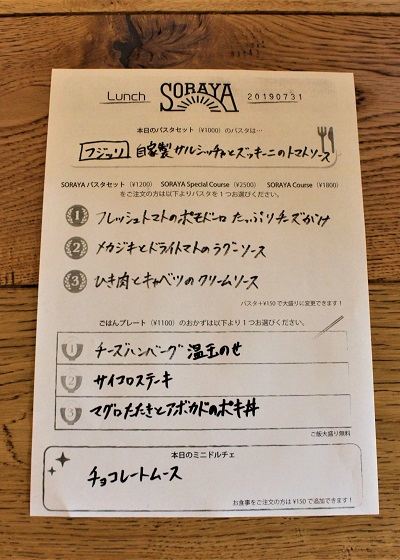 Lunch SORAYA 20190731
本日のパスタセット(¥1000)のパスタは…
フジッリ 自家製サルシッチャとズッキーニのトマトソース
SORAYA パスタセット(¥1200) SORAYA Special Course(¥2500) SORAYA Course(¥1800)
をご注文の方は以下よりパスタを1つお選びください。
1 フレッシュトマトのポモドーロ たっぷりチーズがけ
2 メカジキとドライトマトのラグーソース
3 ひき肉とキャベツのクリームソース
パスタ+¥150で大盛りに変更できます!
ごはんプレート(¥1100)のおかずは以下より1つお選びください。
1 チーズハンバーグ 温玉のせ
2 サイコロステーキ
3 マグロたたきとアボカドのポキ丼
ご飯大盛り無料
本日のミニドルチェ
チョコレートムース
お食事をご注文の方は¥150で追加できます!